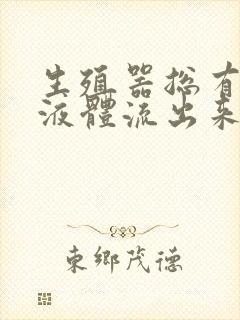 生殖器总有
液體流出来
東鄉茂德